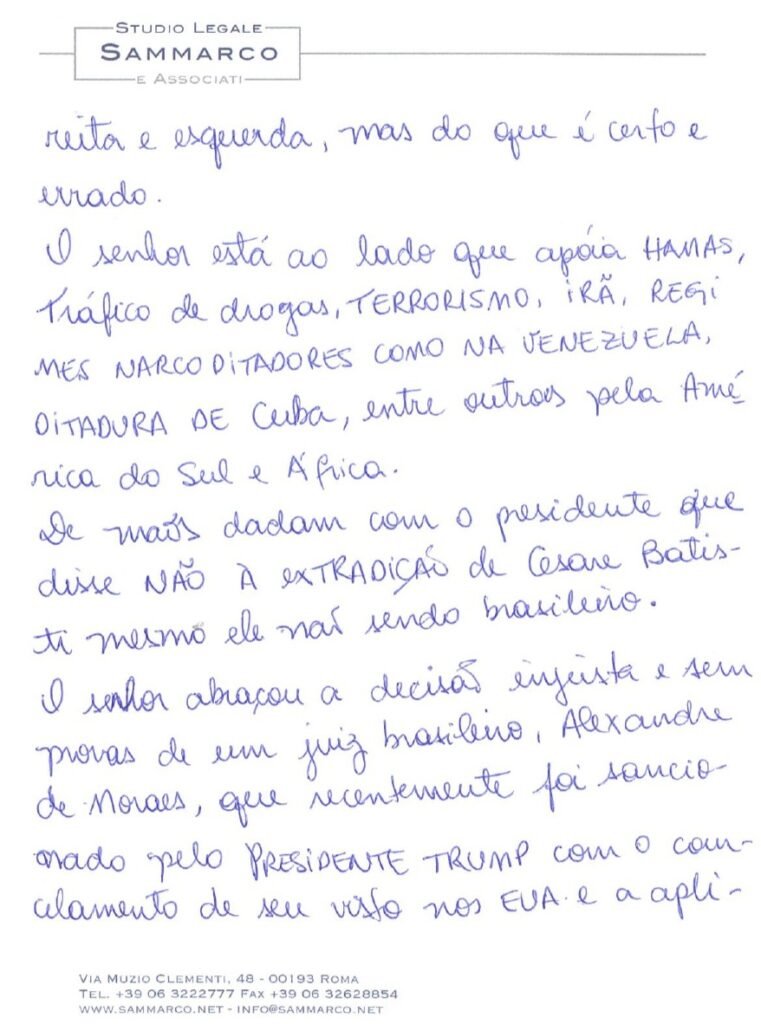 STUDIO LEGALE
SAMMARCO
E ASSOCIATI
reita e esquerda, mas do que é certo e
errado.
O senhor está ao lado que apóia HAMAS,
Tráfico de drogas, TERRORISMO, IRÃ, REGI
MES NARCODITADORES COMO NA VENEZUELA,
DITADURA DE Cuba, entre outros pela Amé
rica do Sul e África.
De maõs dadam com o presidente que
disse NÃO À EXTRADIÇÃO de Cesare Batis-
ti mesmo ele naõ sendo brasileiro.
O senhor abraçou a decisão injusta e sem
provas de um juiz brasileiro, Alexandre
de Moraes, que recentemente foi sancio-
nado pelo PRESIDENTE TRUMP com o can-
celamento de seu visto nos EUA e a apli-
VIA MUZIO CLEMENTI, 48 - 00193 ROMA
TEL. +39 06 3222777 FAX +39 06 32628854
WWW.SAMMARCO.NET - INFO@SAMMARCO.NET